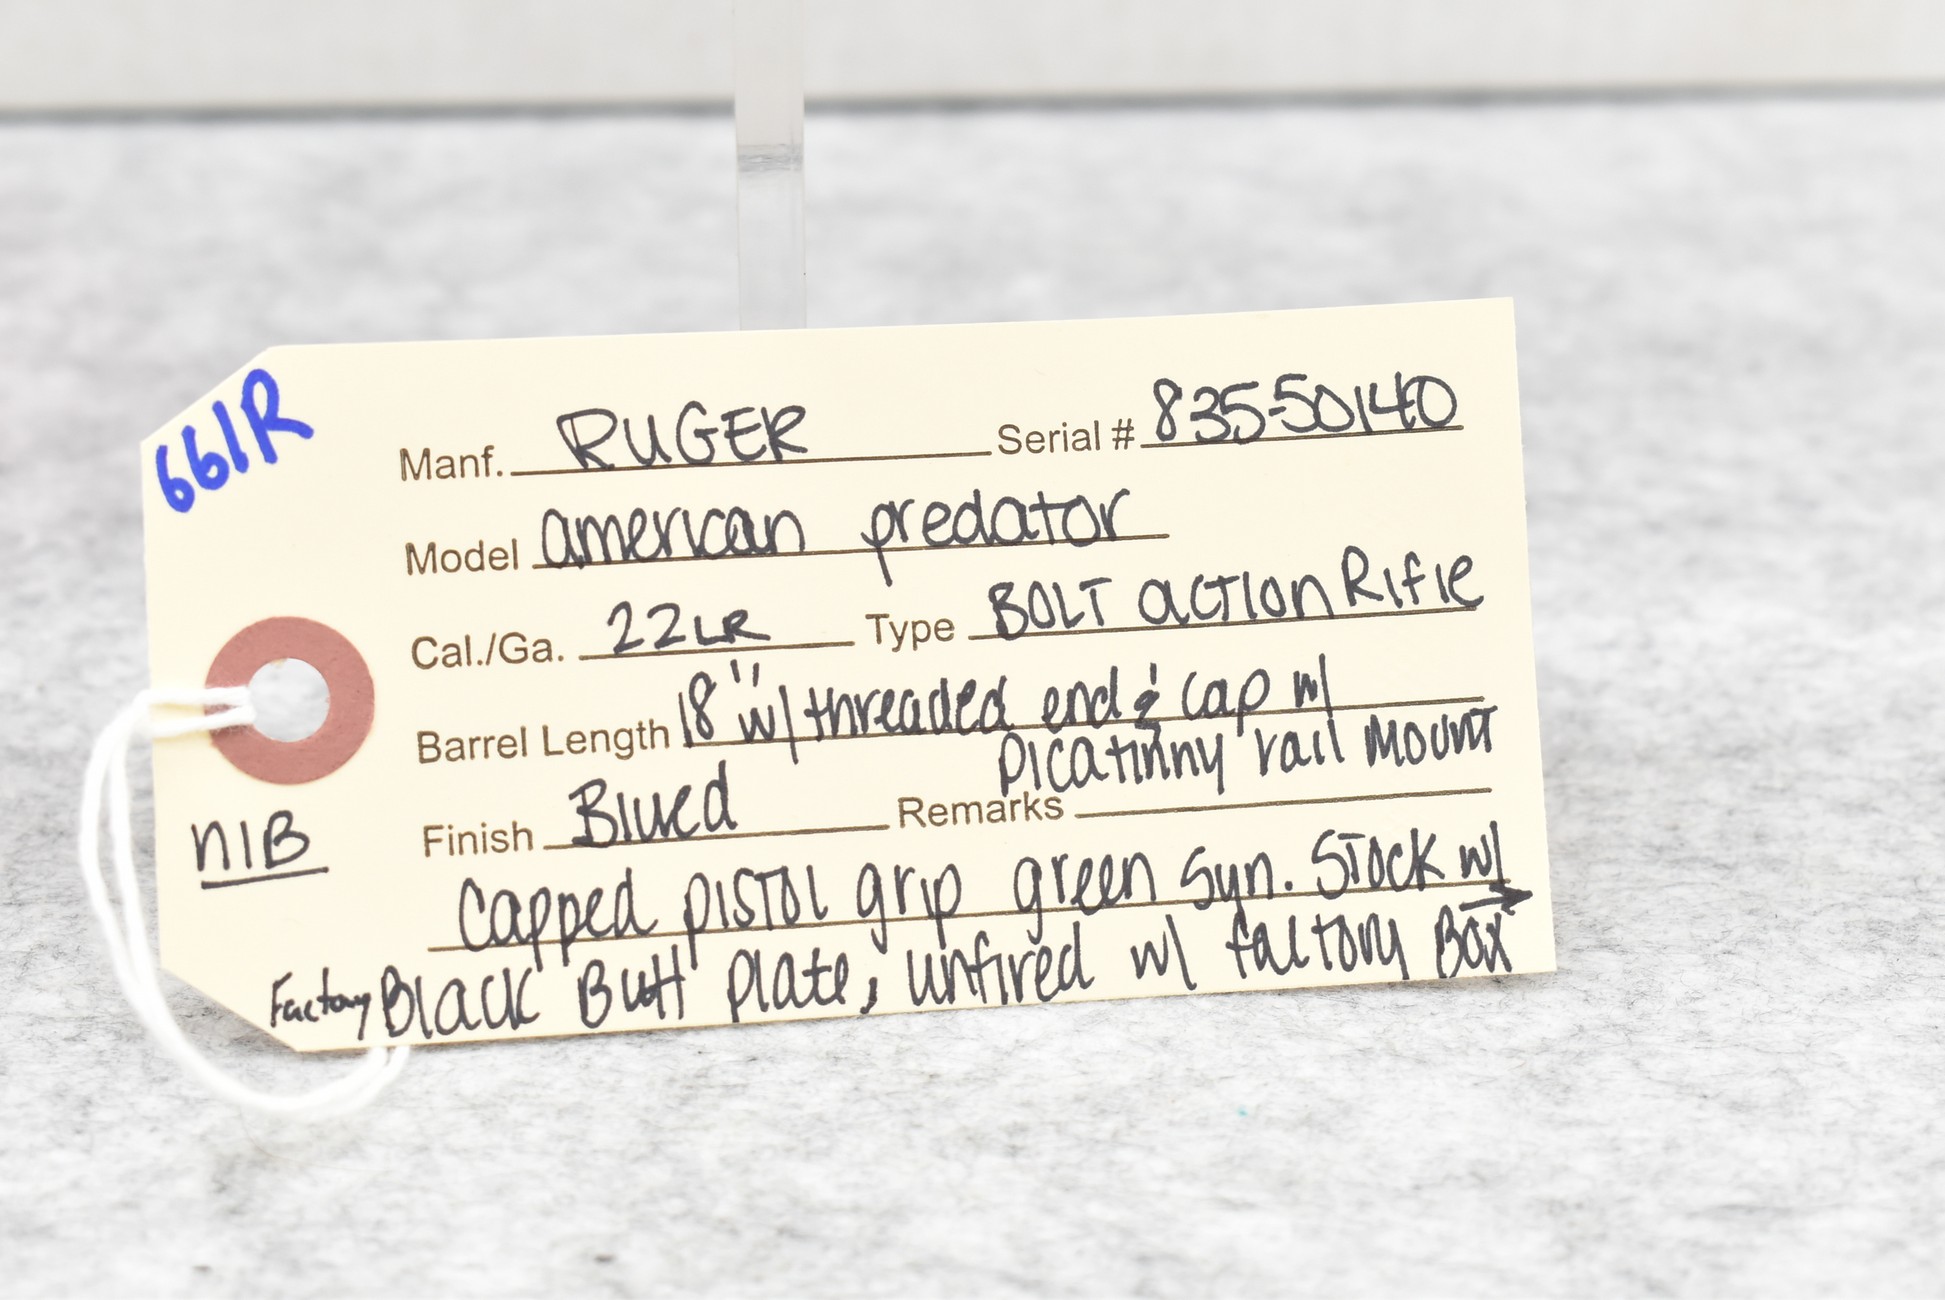 661R
Manf. RUGER Serial # 835-50140
Model american predator
Cal./Ga. 22LR Type BOLT action Rifle
Barrel Length 18" w/ threaded end & cap w/
picatinny rail mount
Finish Blued Remarks
NIB
capped pistol grip green syn. stock w/ →
Factory Black Butt plate, unfired w/ factory Box